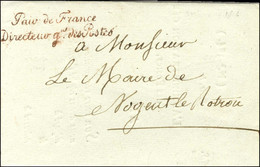 Pair de France
Directeur gal. des Postes
a Monsieur
Le Maire de
Nogent le Rotrou